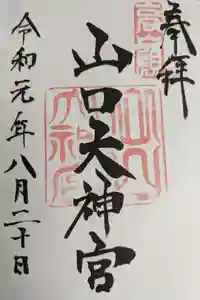 奉拝
山口天神宮
令和元年八月二十日